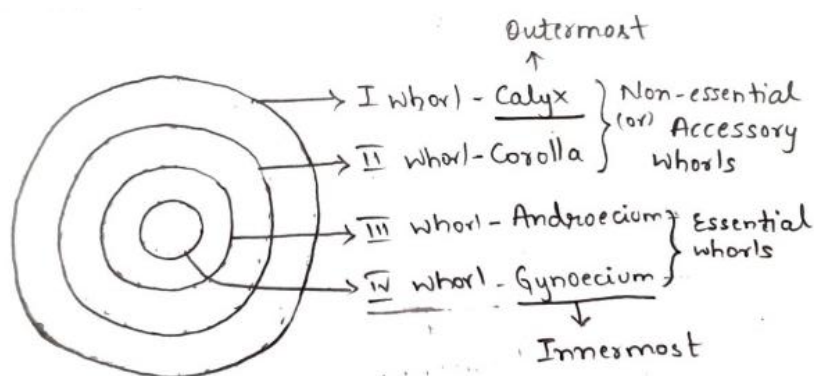 Outermost
I whorl - Calyx
Non-essential
(or) Accessory
whorls
II whorl - Corolla
III whorl - Androecium
Essential
whorls
IV whorl - Gynoecium
Innermost